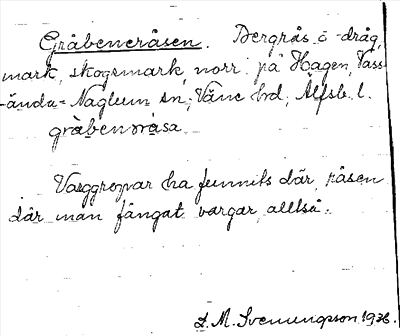 Gråbeneråsen. Bergrås o -dråg,
mark, skogsmark, norr på Hagen, Vass-
ända-Naglum sn, Väne hd, Älfsb. l.
gràbenərasa
Varggropar ha funnits där, råsen
där man fångat vargar, alltså.
L. M. Svenungsson 1936.